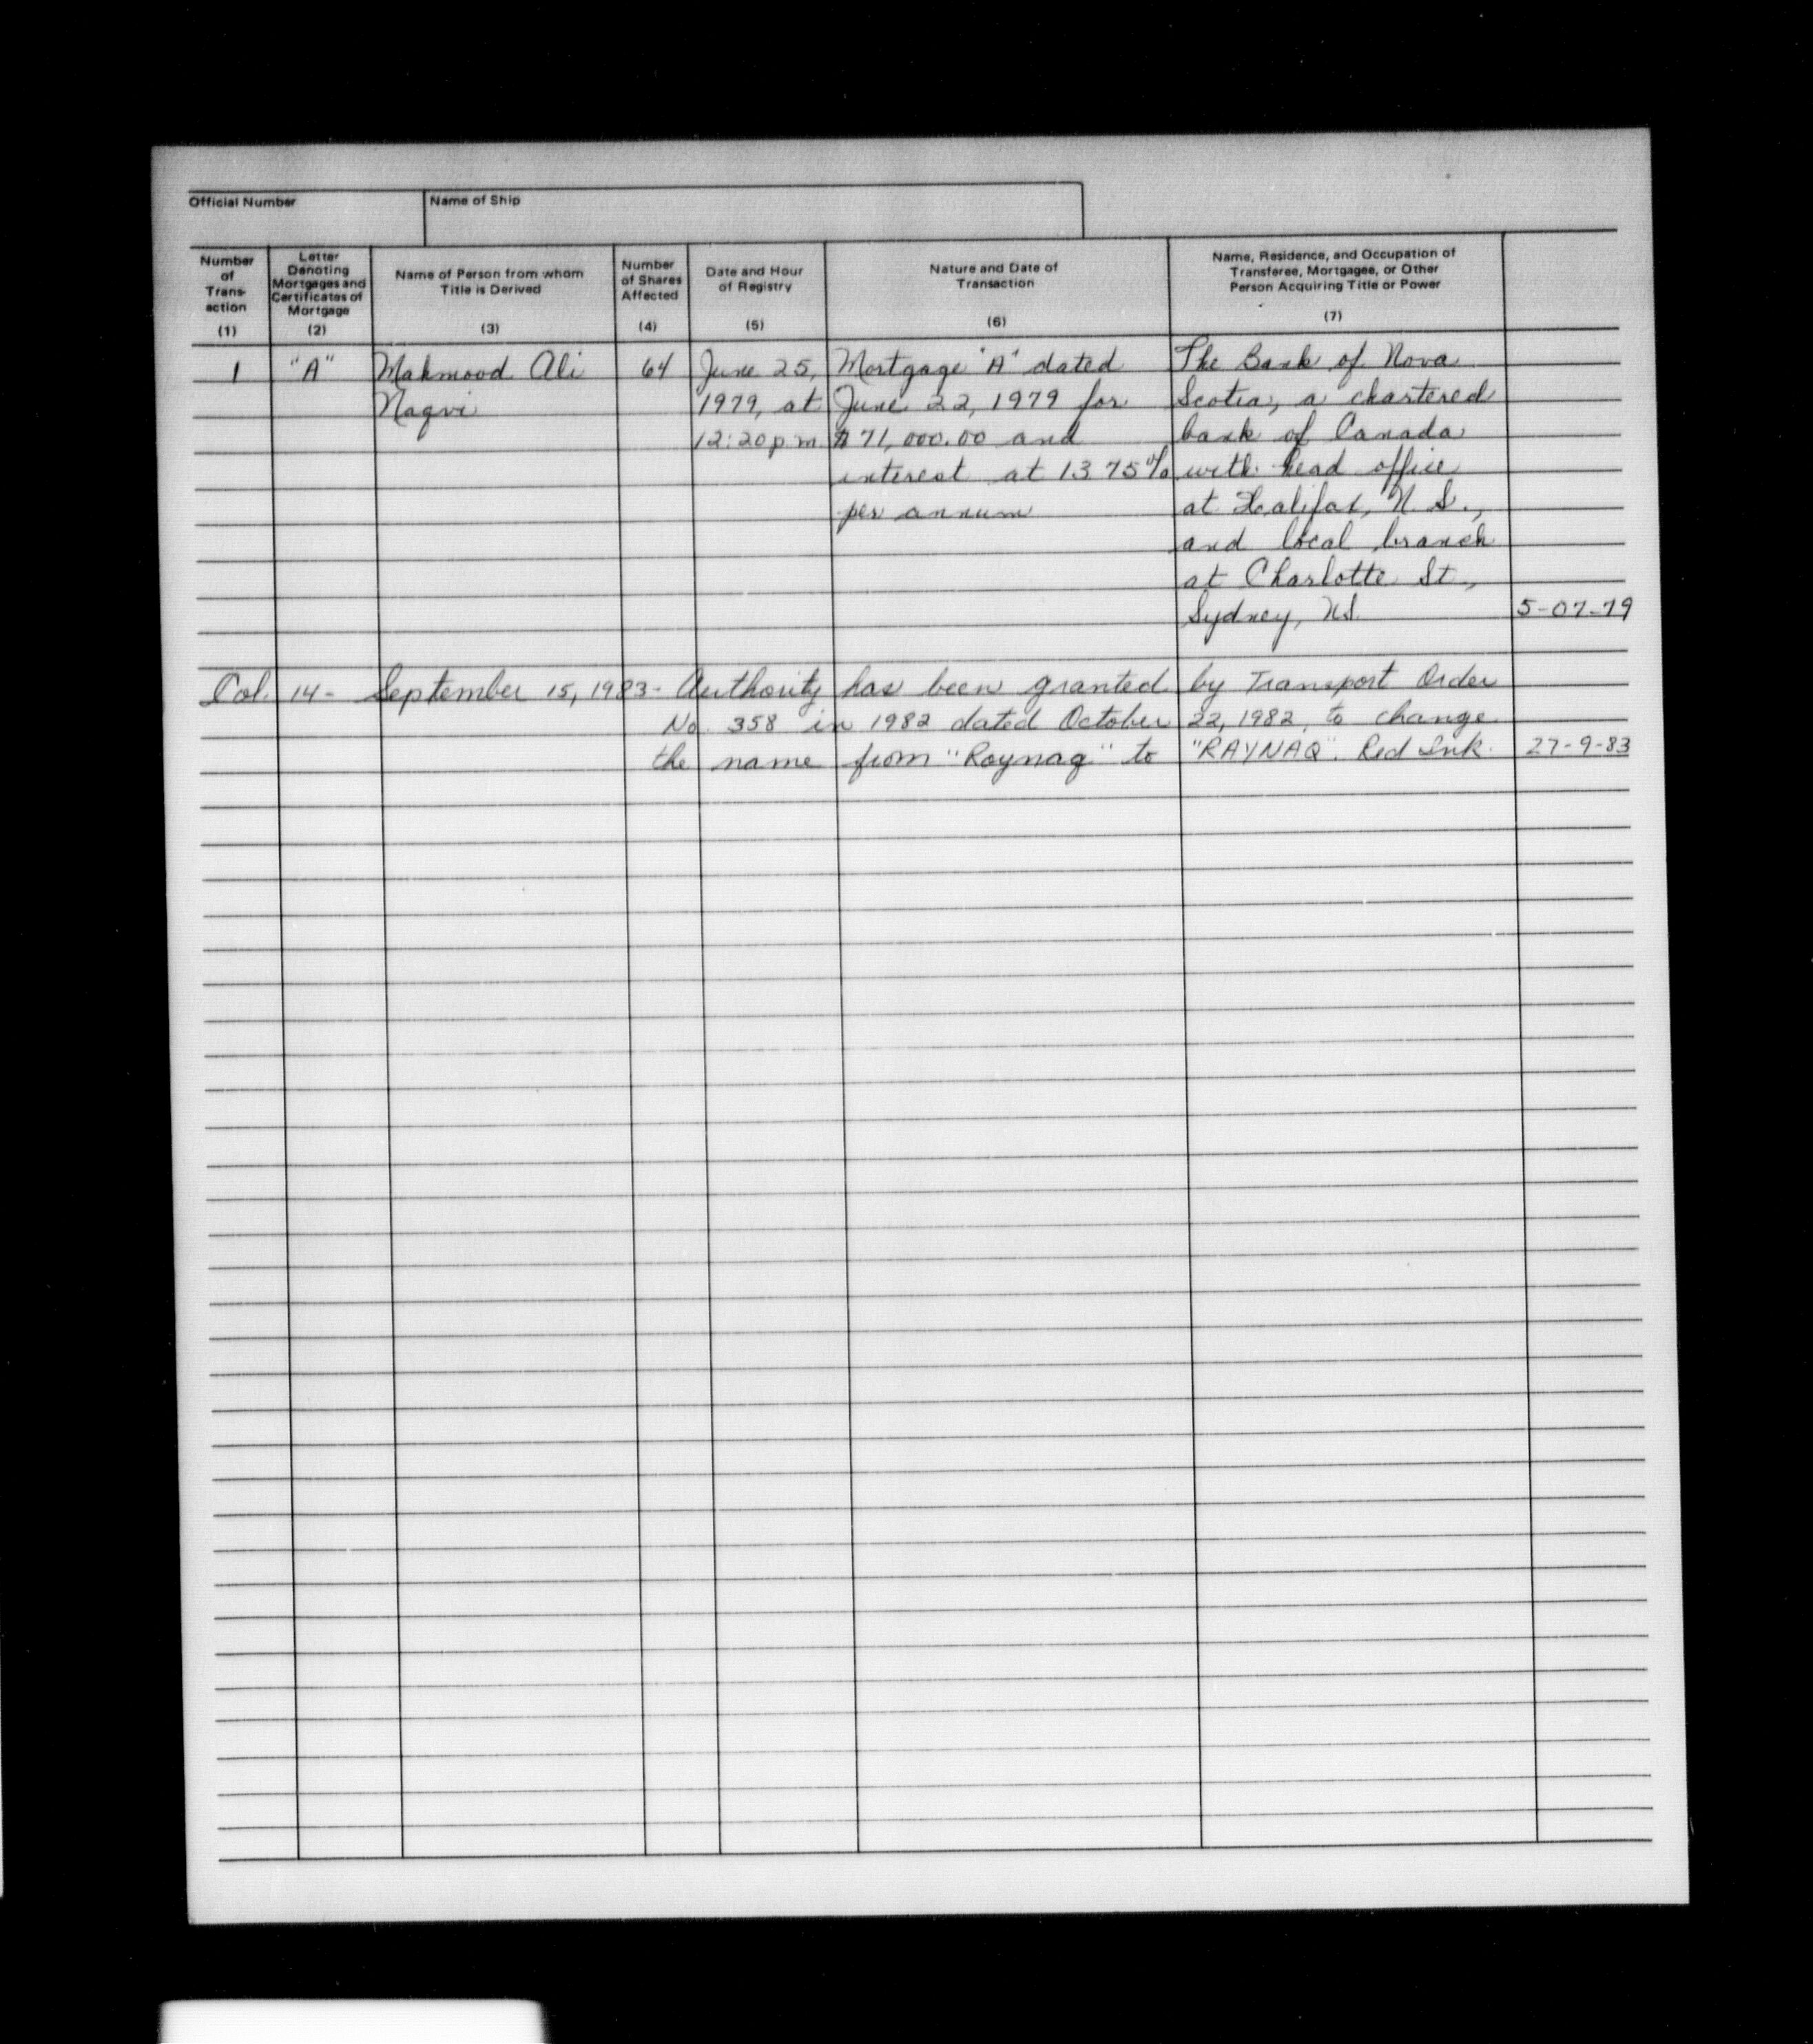 Official Number
Name of Ship
Number of Trans- action (1)
Letter Denoting Mortgages and Certificates of Mortgage (2)
Name of Person from whom Title is Derived (3)
Number of Shares Affected (4)
Date and Hour of Registry (5)
Nature and Date of Transaction (6)
Name, Residence, and Occupation of Transferee, Mortgagee, or Other Person Acquiring Title or Power (7)
1
"A"
Mahmood Ali
Naqvi
64
June 25,
1979, at
12:20 p.m.
Mortgage "A" dated
June 22, 1979 for
$71,000.00 and
interest at 13.75%
per annum
The Bank of Nova
Scotia, a chartered
bank of Canada
with head office
at Halifax, N.S.,
and local branch
at Charlotte St.,
Sydney, N.S.
5-07-79
Col. 14- September 15, 1983- Authority has been granted by Transport Order
No. 358 in 1982 dated October 22, 1982, to change
the name from "Raynag" to "RAYNAQ". Red Ink. 27-9-83